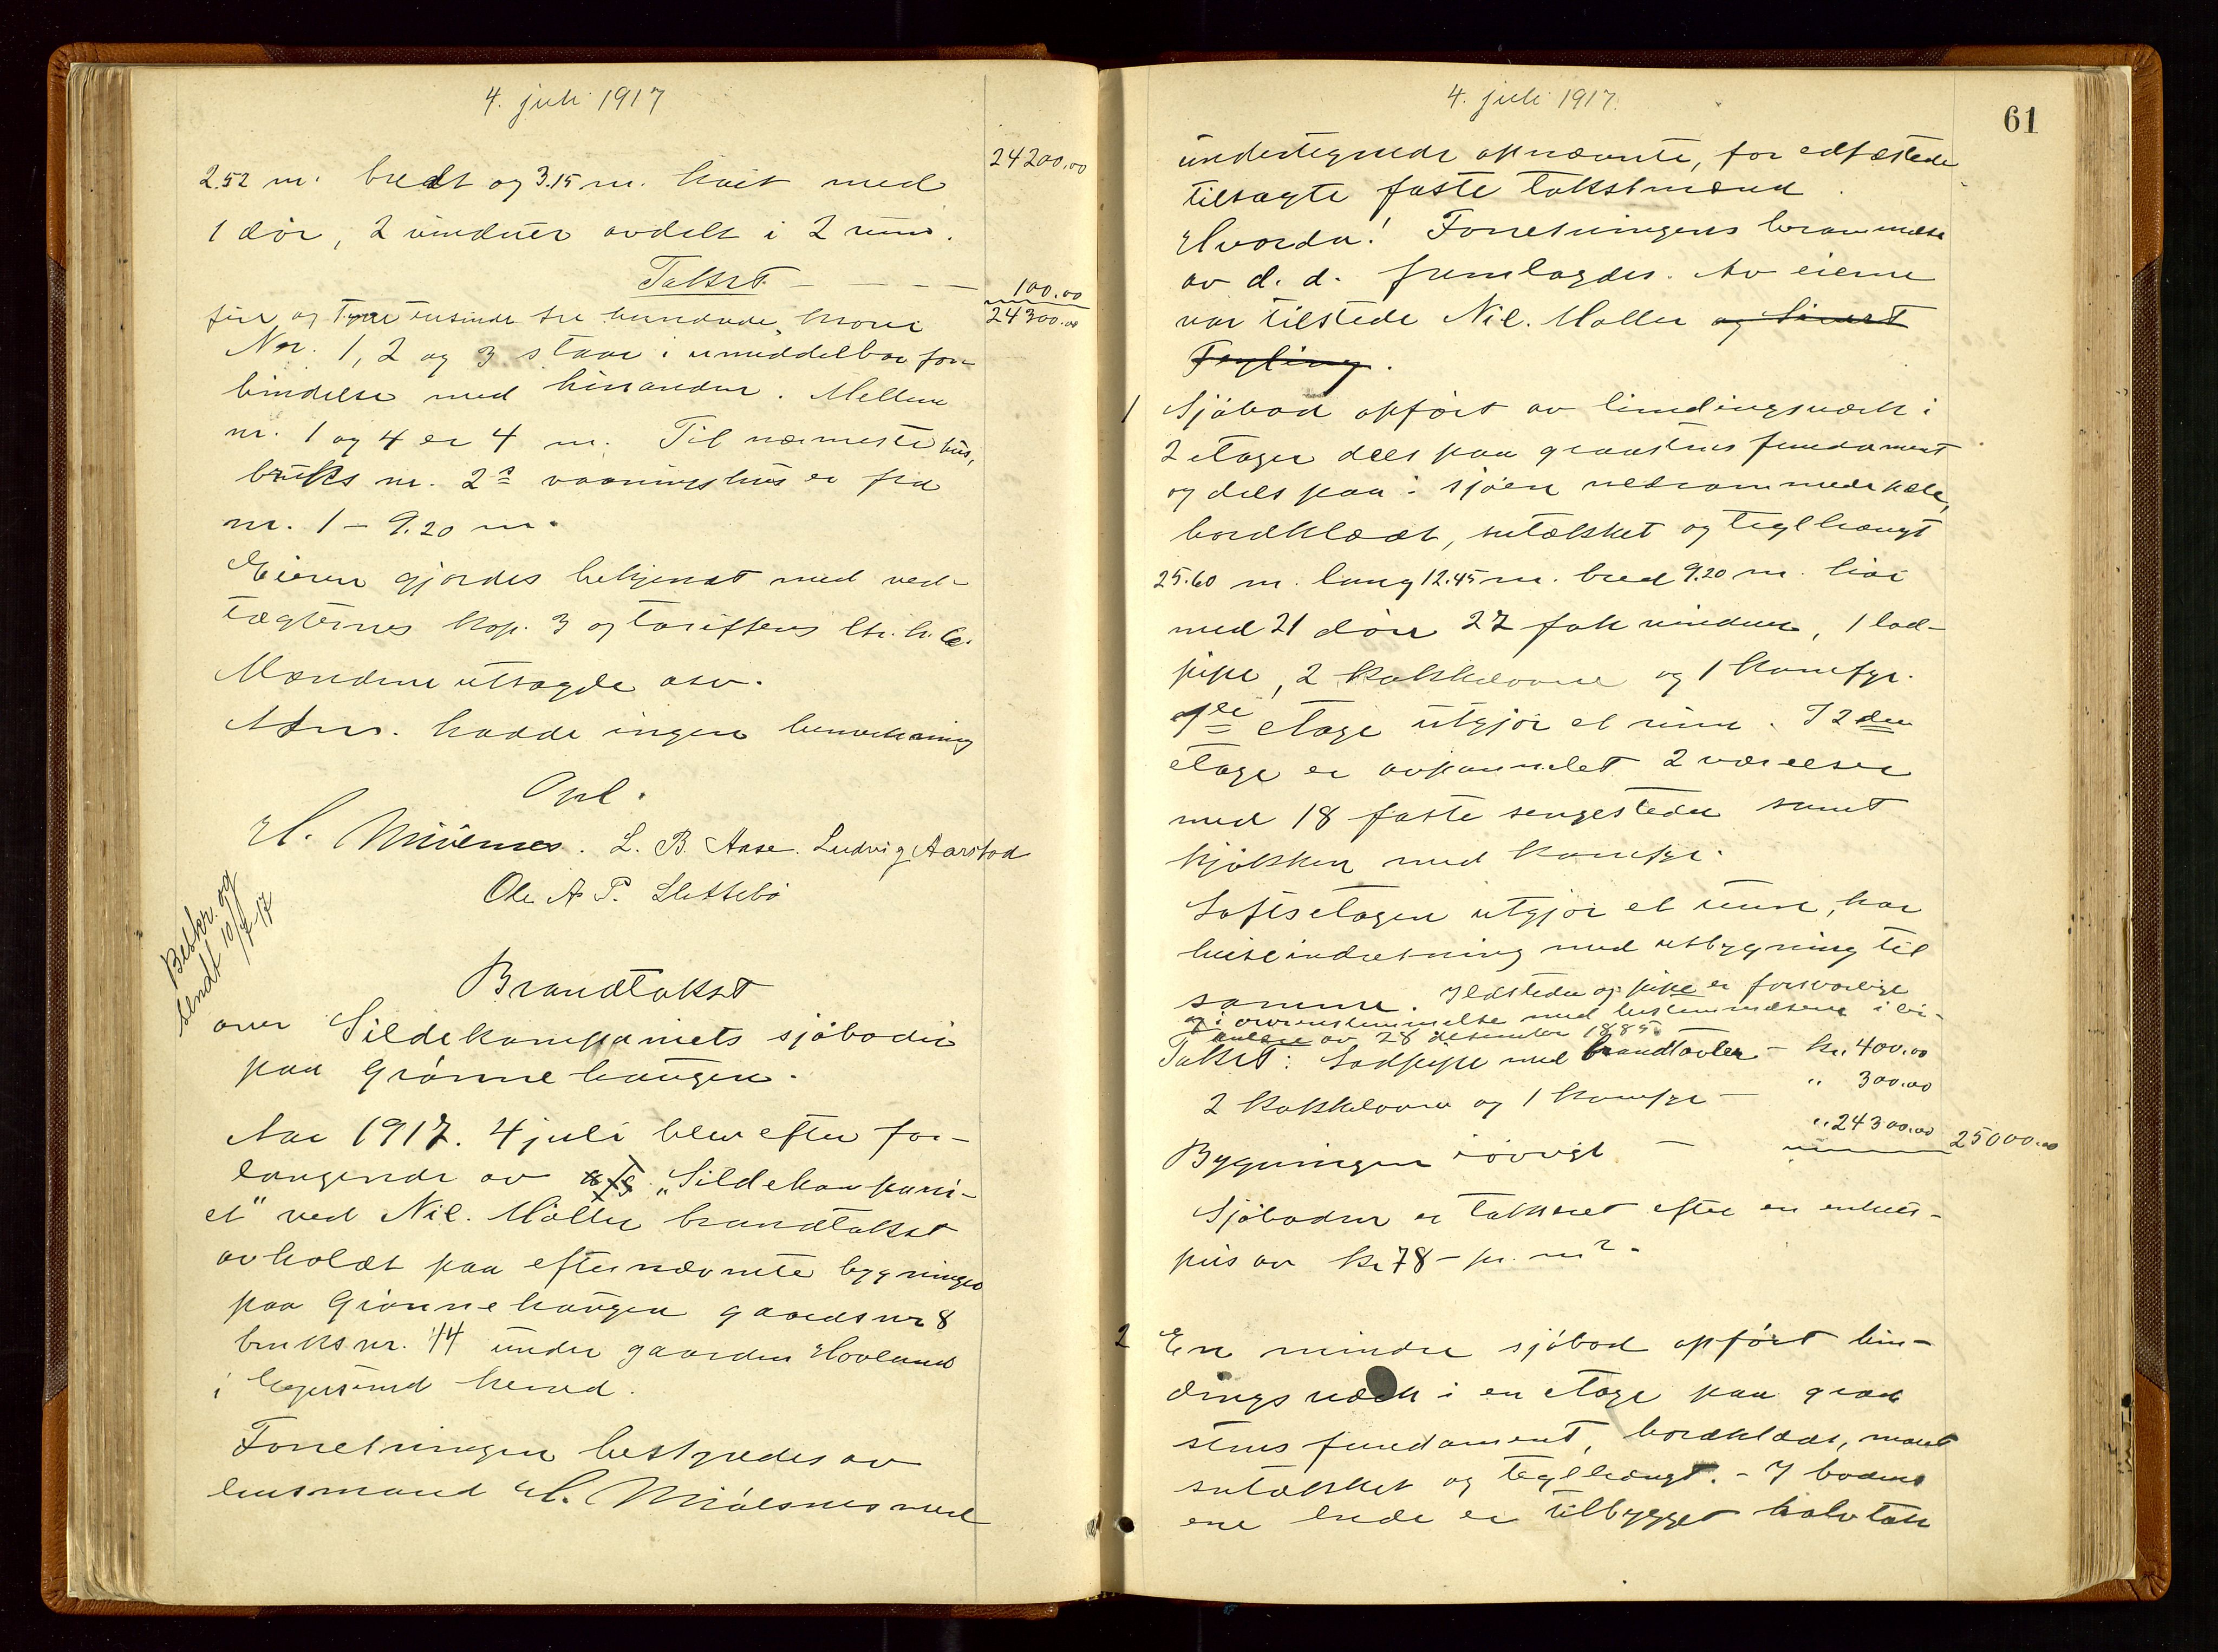 4. juli 1917
24200.00
2.52 m. bredt og 3.15 m. høit med
1 dør, 2 vinduer avdelt i 2 rum.
Takst - - - - 100.00
24300.00
fire og tyve tusinde tre hundrede kroner
Nr. 1, 2 og 3 staar i umiddelbar for-
bindelse med hinanden. Mellem
nr. 1 og 4 er 4 m. Til nærmeste hus,
bruks nr. 2s vaaningshus er fra
nr. 1 - 9.20 m.
Eieren gjordes bekjendt med ved-
tægternes kap. 3 og tariffens
Mændene utsagde osv.
hadde ingen bemerkning
Opl.
H. Mjølsnes. L. B. Aase. Ludvig Aarstad
Ole A. P. Slettebø
Beskr. og
sendt 10/7-17
Brandtakst
over Sildekompaniets sjøboder
paa Grønnehaugen.
Aar 1917. 4 juli blev efter for-
langende av a/s "Sildekompani-
et" ved Nil. Møller brandtakst
avholdt paa efternævnte bygninger
paa Grønnehaugen gaardsnr 8
bruksnr. 44 under gaarden Hovland
i Egersund herred.
Forretningen bestyredes av
lensmand H. Mjølsnes med
4. juli 1917.
61
undertegnede opnævnte, for edfæstede
tilsagte faste takstmænd.
Hvorda! Forretningens berammelse
av d. d. fremlagdes. Av eierne
var tilstede Nil. Møller og Sivert
Fegling.
1 Sjøbod opført av bindingsverk i
2 etager dels paa graastens fundament
og dels paa i sjøen nedrammede pæle,
bordklædt, sutakket og teglhængt
25.60 m. lang 12.45 m. bred 9.20 m. høi
med 21 døre 27 fak vinduer, 1 lod-
pipe, 2 kakkelovne og 1 komfyr.
1ste etage utgjør et rum. I 2den
etage er avpanelet 2 værelser
med 18 faste sengesteder samt
kjøkken med komfyr.
Loftsetagen utgjør et rum, har
heiseindretning med utbygning til
samme. Ildsteder og pipe er forsvarlige
og i overensstemmelse med bestemmelserne i cir-
kulære av 28 desember 1885
Takst: Lodpipe med brandtavler - kr. 400.00
2 kakkelovne og 1 komfyr - " 300.00
Bygningen iøvrigt - " 24300.00 25000.00
Sjøboden er taksert efter en enhets-
pris av kr 78 - pr. m2.
2 En mindre sjøbod opført bin-
dingsverk i en etage paa graa
stens fundament, bordklædt, malt
sutakket og teglhængt. - I bodens
ene ende er tilbygget halvtak